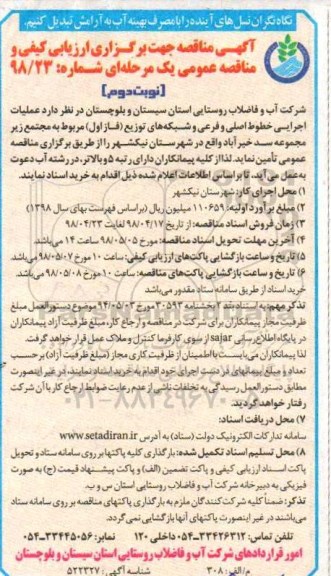 نگاه نگران نسل‌های آینده را با مصرف بهینه آب به آرامش تبدیل کنیم.
آگهی مناقصه جهت برگزاری ارزیابی کیفی و
مناقصه عمومی یک مرحله‌ای شماره: ۹۸/۲۳
(نوبت دوم)
شرکت آب و فاضلاب روستایی استان سیستان و بلوچستان در نظر دارد عملیات
اجرایی خطوط اصلی و فرعی و شبکه‌های توزیع (فاز اول) مربوط به مجتمع زیر
مجموعه سد خیرآباد واقع در شهرستان نیکشهر را از طریق برگزاری مناقصه
عمومی تأمین نماید. لذا از کلیه پیمانکاران دارای رتبه ۵ و بالاتر، در رشته آب دعوت
به عمل می‌آید، تا براساس اطلاعات اعلام شده ذیل اقدام به خرید اسناد نمایند.
۱) محل اجرای کار: شهرستان نیکشهر
۲) مبلغ برآورد اولیه: ۱۱۰۶۵۹ میلیون ریال (براساس فهرست بهای سال ۱۳۹۸)
۳) زمان فروش اسناد مناقصه: از تاریخ ۹۸/۰۴/۱۷ لغایت ۹۸/۰۴/۲۳
۴) آخرین مهلت تحویل اسناد مناقصه: مورخ ۹۸/۰۵/۰۵ ساعت ۱۴ می‌باشد.
۵) تاریخ و ساعت بازگشایی پاکت‌های ارزیابی کیفی: ساعت ۱۰ مورخ ۹۸/۰۵/۰۷ می‌باشد
۶) تاریخ و ساعت بازگشایی پاکت‌های مناقصه: ساعت ۱۰ مورخ ۹۸/۰۵/۰۸ می‌باشد.
خرید اسناد از طریق سامانه ستاد مقدور می‌باشد
تذکر مهم: به استناد بند ۲ بخشنامه ۳۰۵۹۳ مورخ ۹۴/۰۵/۰۳ موضوع دستورالعمل مبلغ
ظرفیت مجاز پیمانکاران برای شرکت در مناقصه و ارجاع کار، مبلغ ظرفیت آزاد پیمانکاران
در پایگاه اطلاع رسانی sajar از سوی کارفرما کنترل و ملاک عمل قرار خواهد گرفت.
لذا پیمانکاران می‌بایست با اطمینان از ظرفیت کاری مجاز (مبلغ ظرفیت آزاد) برحسب
تعداد و مبلغ پیمانهای در دست اجرای خود اقدام به خرید اسناد نمایند، در غیر اینصورت
مطابق دستورالعمل رسیدگی به تخلفات ناشی از عدم رعایت ضوابط ارجاع کار با آن شرکت
رفتار خواهد گردید.
۷) محل دریافت اسناد:
سامانه تدارکات الکترونیک دولت (ستاد) به آدرس www.setadiran.ir
۸) محل تسلیم اسناد تکمیل شده: بارگذاری کلیه پاکتها بر روی سامانه ستاد و تحویل
پاکت اسناد ارزیابی کیفی و پاکت تضمین (الف) و پاکت پیشنهاد قیمت (ج) به صورت
فیزیکی به دبیرخانه شرکت آب و فاضلاب روستایی استان س و ب.
تذکر: ضمناً کلیه شرکت کنندگان ملزم به بارگذاری پاکتهای مناقصه بر روی سامانه ستاد
می‌باشند در غیر اینصورت پاکتهای آنها بازگشایی نمی‌گردد.
تلفن تماس: ۳۳۴۲۶۳۱۲-۰۵۴ داخلی ۱۲۰ نمابر: ۳۳۴۴۵۰۵۶-۰۵۴
امور قراردادهای شرکت آب و فاضلاب روستایی استان سیستان و بلوچستان
م الف: ۳۰۸ شناسه آگهی: ۵۲۲۳۲۷